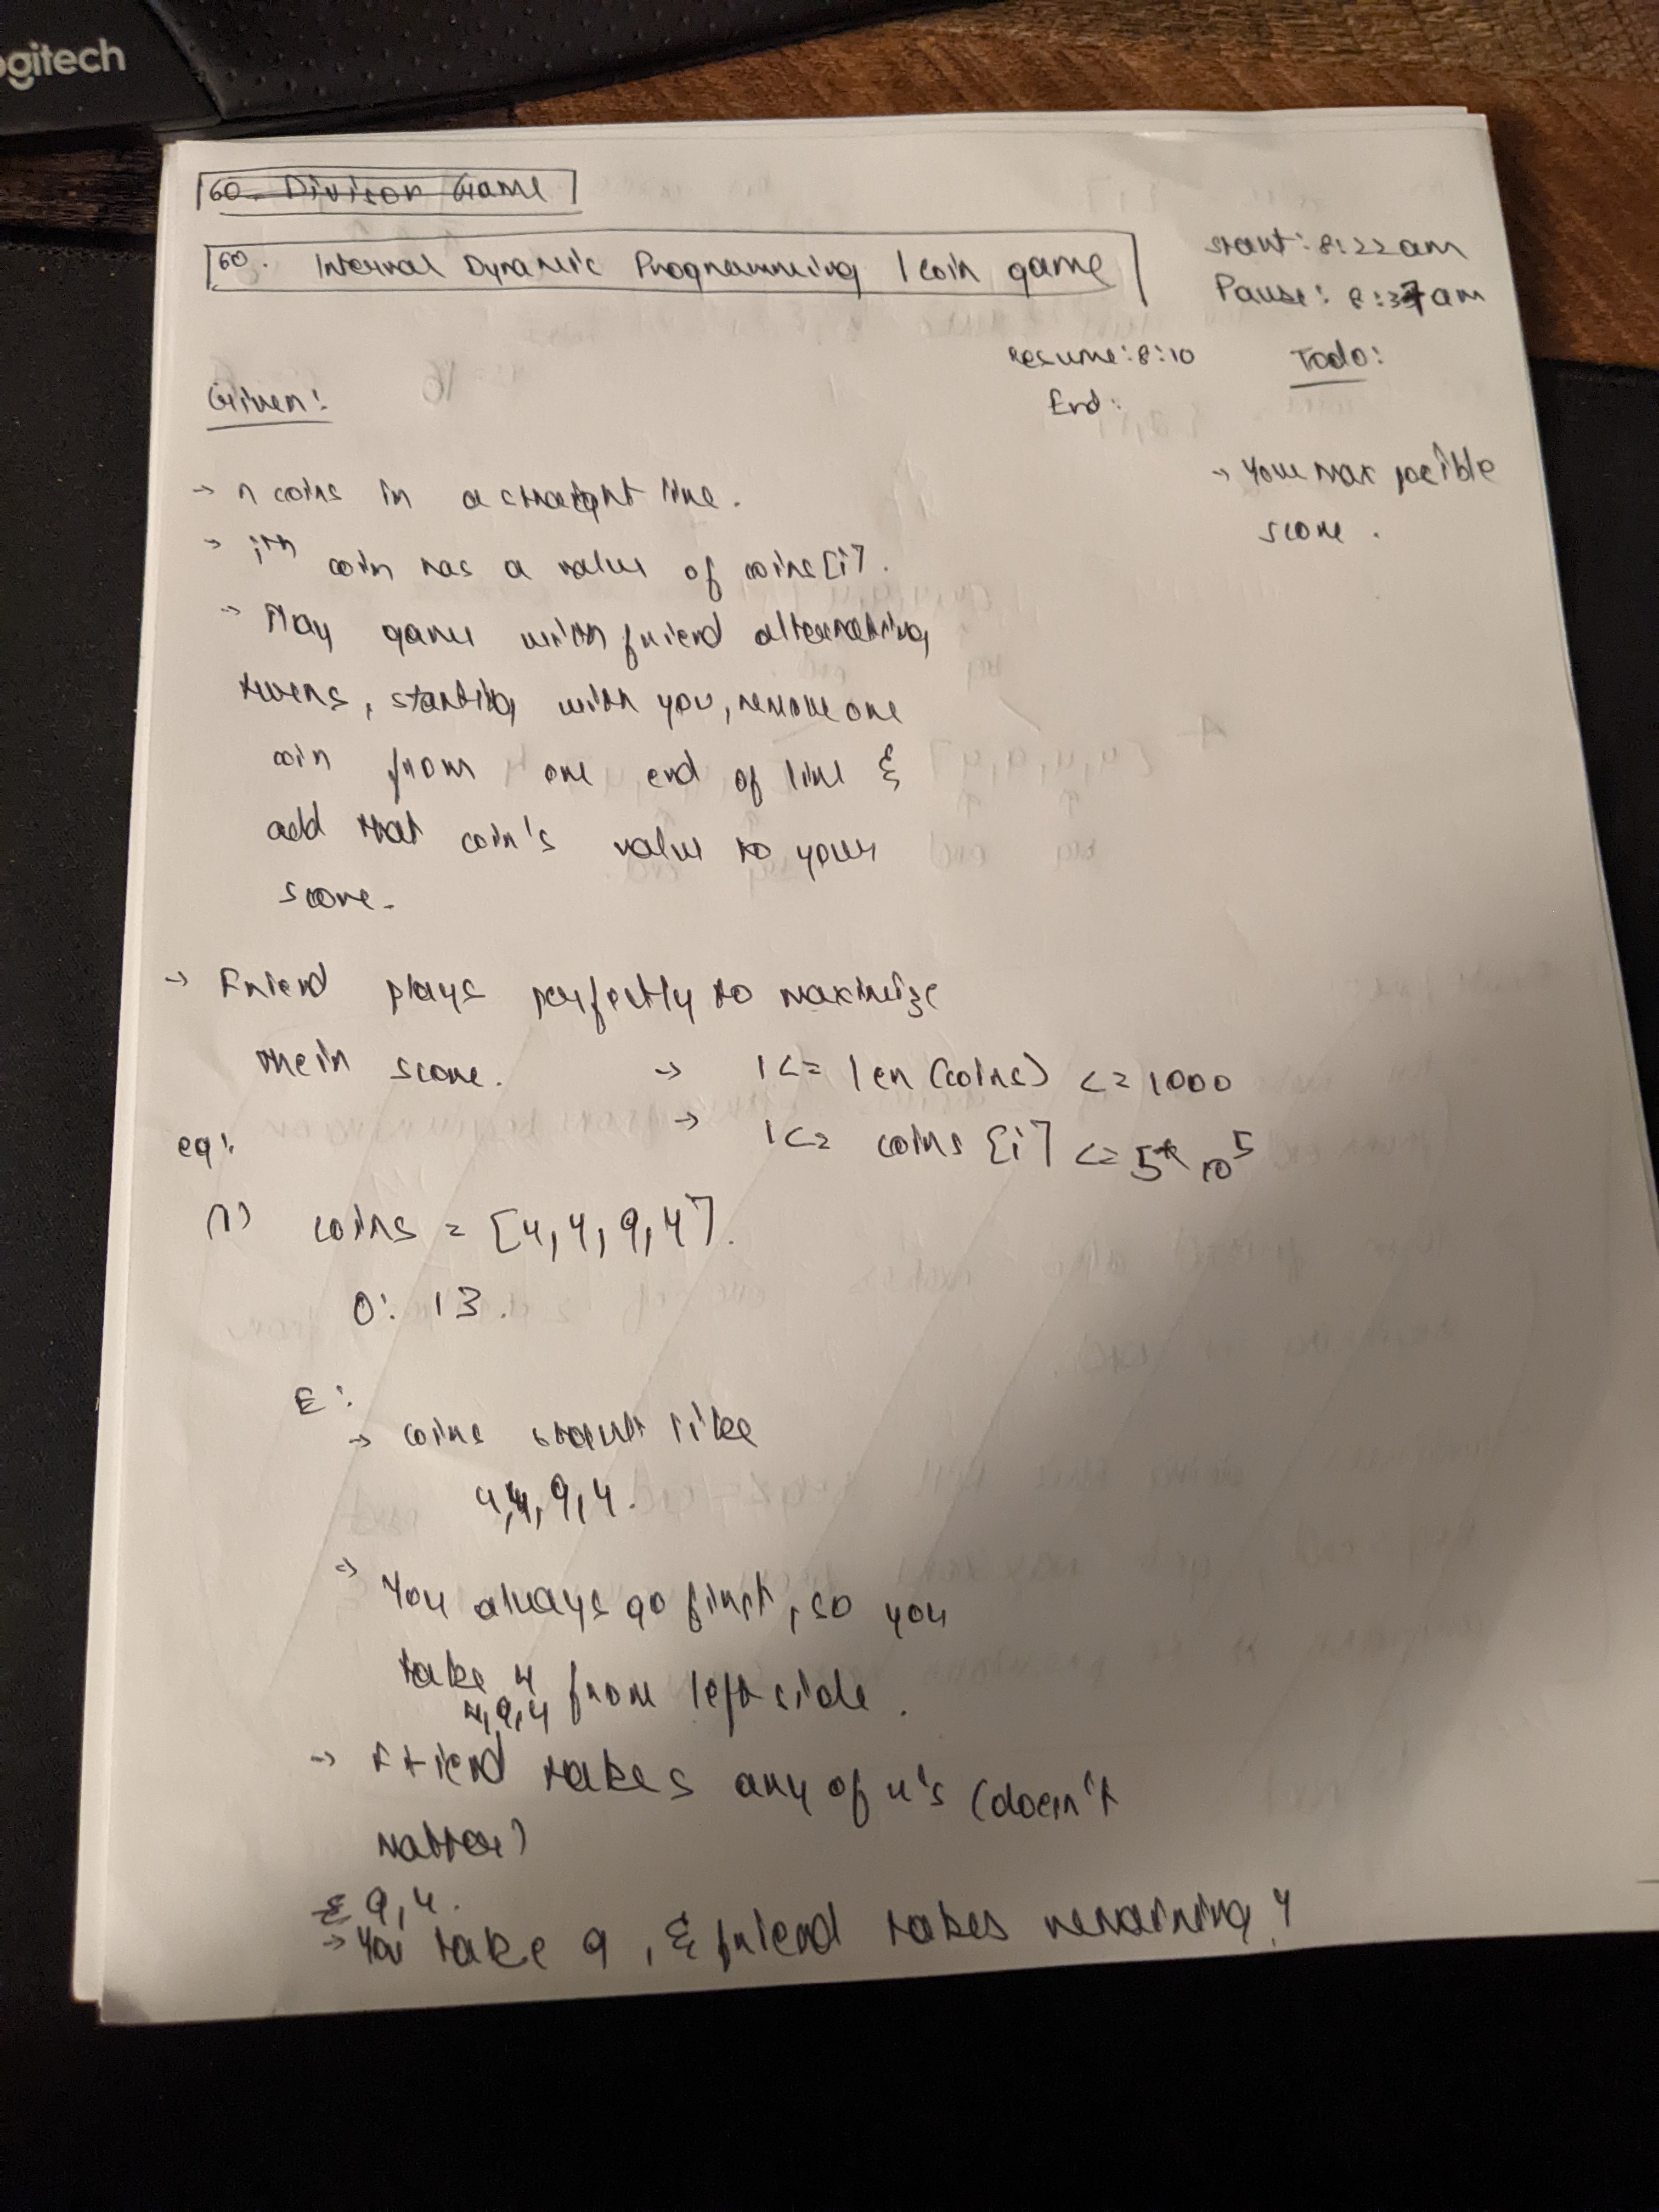 ogitech
60. Divisor Game
60. Interval Dynamic Programming / coin game
start: 8:22 am
Pause: 8:37 am
Resume: 8:10
Todo:
End:
Given:
→ your max posible
score.
→ n coins in a straight line.
→ ith coin has a value of coins[i].
→ Play game with friend alternating
turens, starting with you, remove one
coin from one end of line &
add that coin's value to your
score.
→ Friend plays perfectly to maximize
their score.
→ 1 <= len(coins) <= 1000
→ 1 <= coins[i] <= 5*10^5
eg:
(1) coins = [4,4,9,4].
O: 13.
E:
→ coins start like
4,4,9,4.
→ You always go first, so you
take 4 from left side.
4,9,4
→ Friend takes any of 4's (doesn't
matter)
9,4.
→ You take 9, & friend takes remaining 4